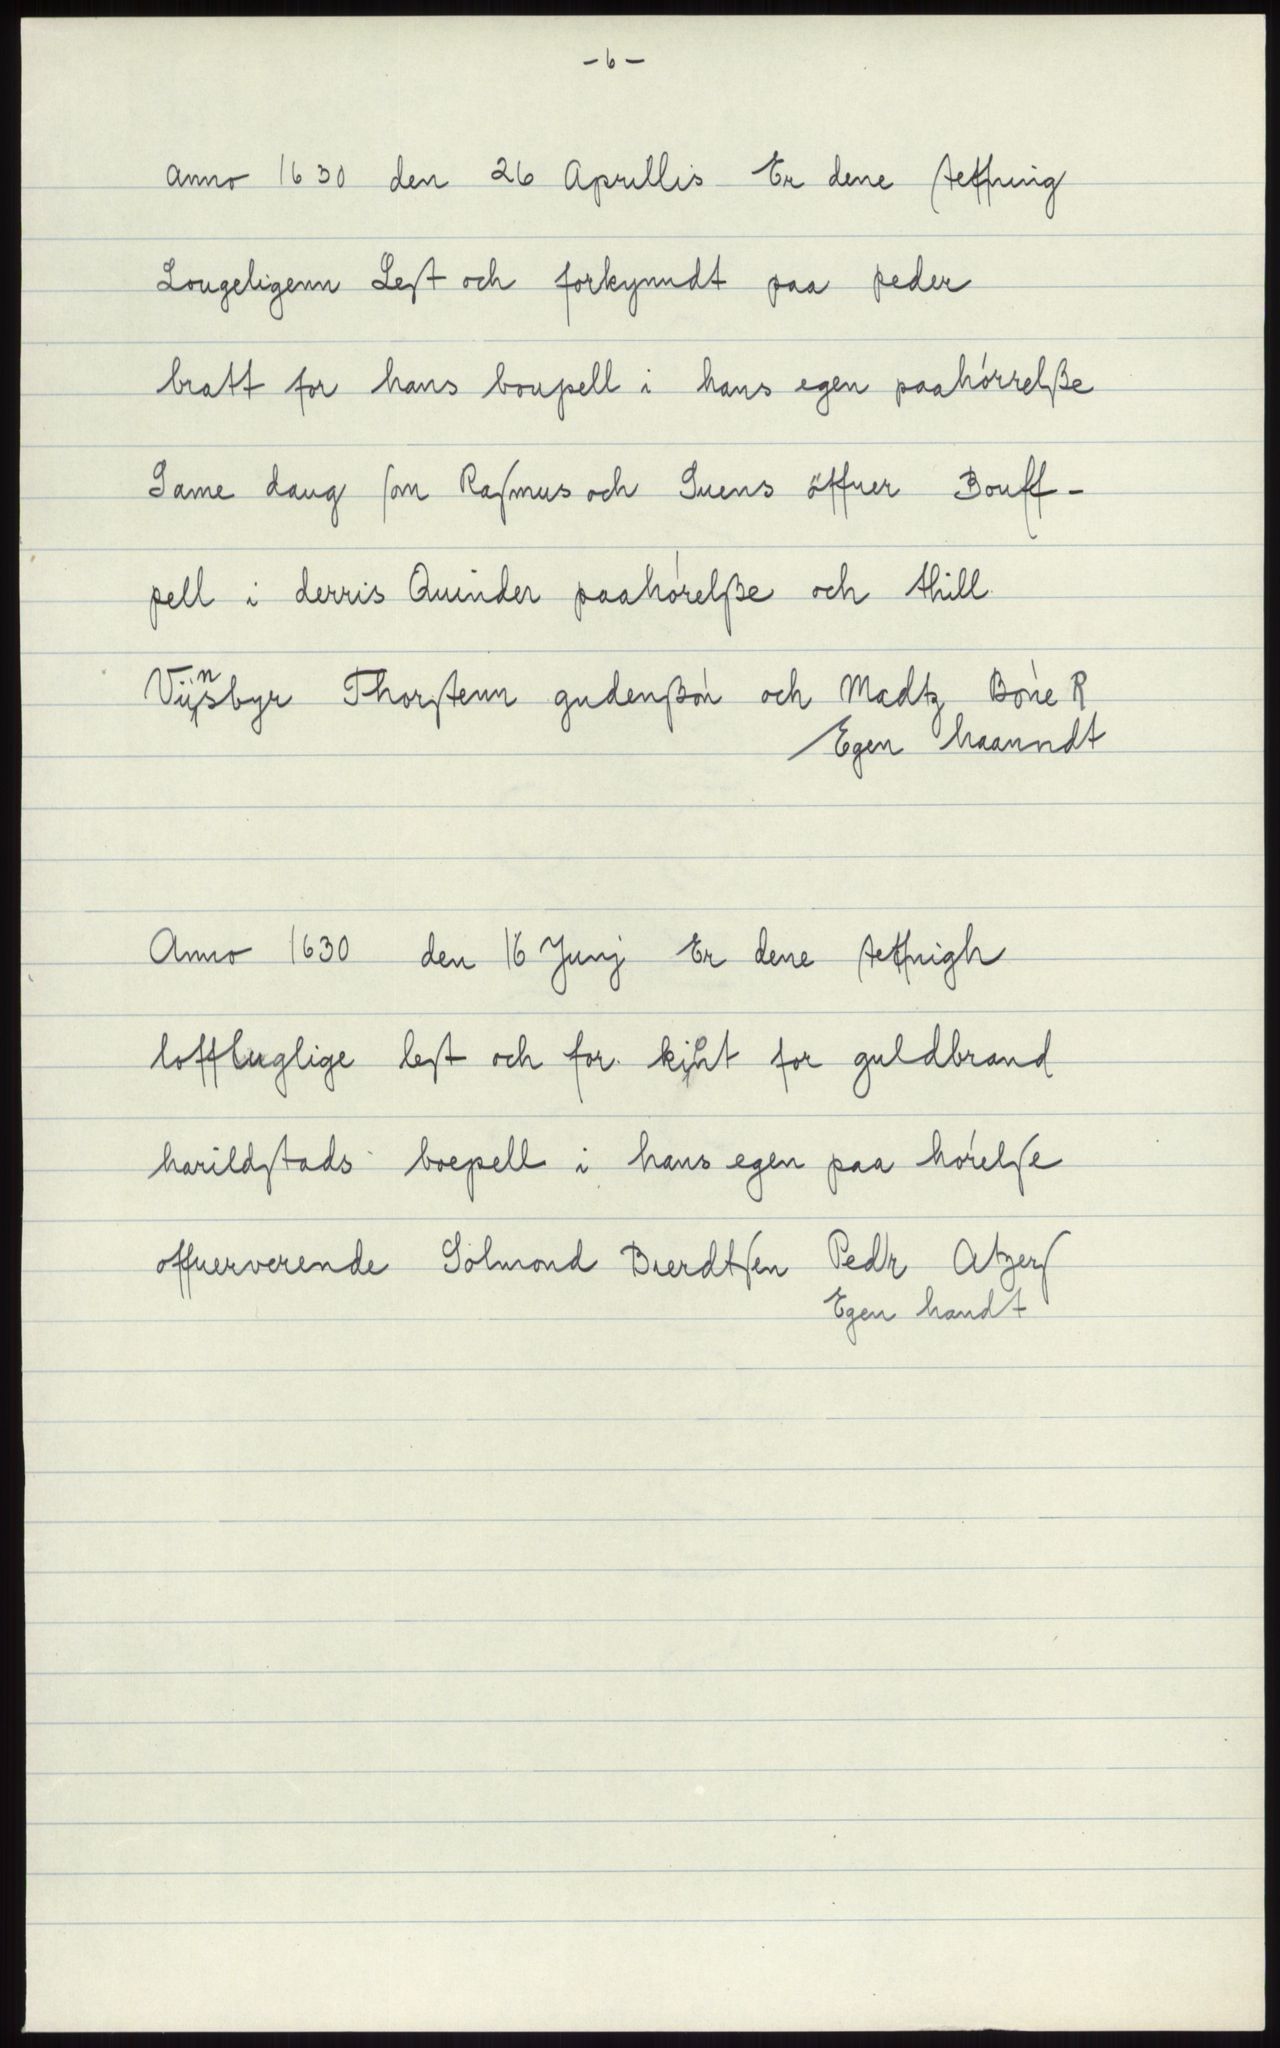 - 6 -
anno 1630 den 26 Aprillis Er dene steffning
Lougeligenn Lest och forkynndt paa peder
bratt for hans boupell i hans egen paahórrelsze
Same daug som Rasmus och Suens öffuer Bouff-
pell i derris Quinder paahórelsze och thill
Vijnsbyr Thorstenn gudenszón och Madtz Bóne R
Egen haanndt
Anno 1630 den 16 Junj Er dene steffnigh
loffluglige lest och for kint for guldbrand
harildstads boepell i hans egen paa hórelse
offuerverende Sólmond Buerdtsen Pedr Atzers
Egen handt